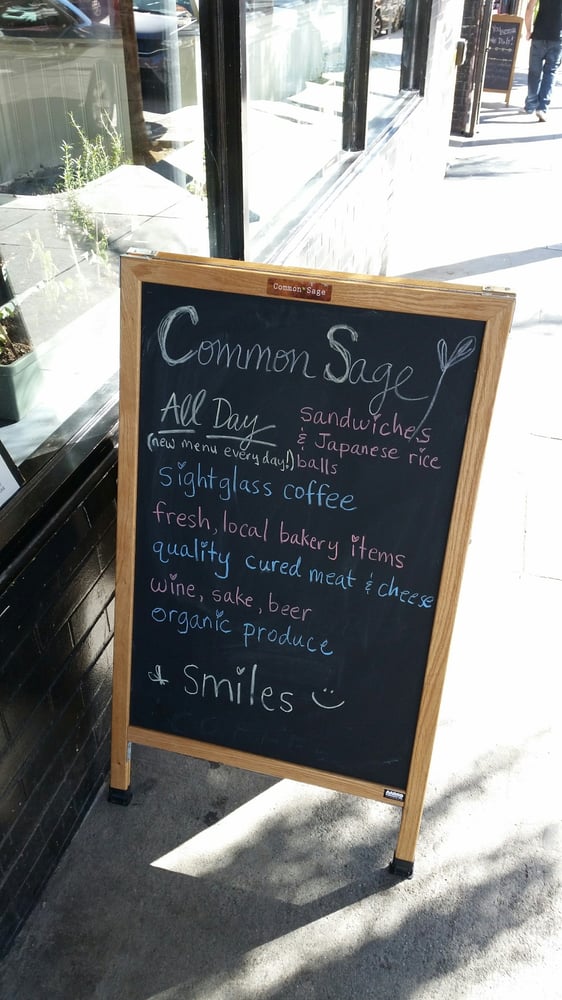 Common Sage
Common Sage
All Day
(new menu every day!)
sandwiches
& Japanese rice
balls
Sightglass coffee
fresh, local bakery items
quality cured meat & cheese
wine, sake, beer
organic produce
& Smiles